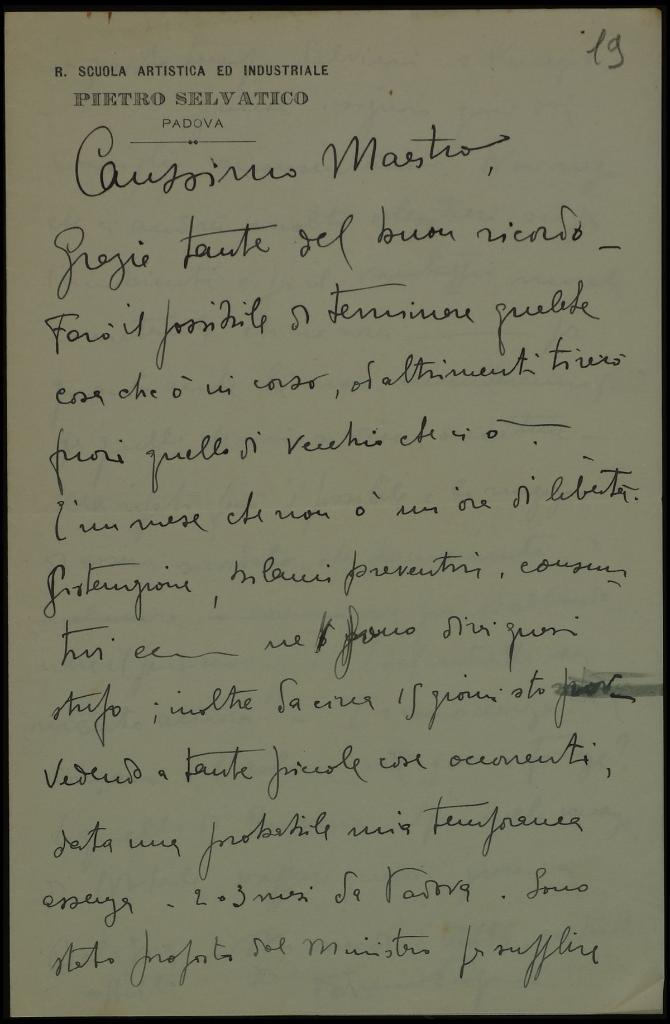 19
R. SCUOLA ARTISTICA ED INDUSTRIALE
PIETRO SELVATICO
PADOVA
Carissimo Maestro,
Grazie tante del buon ricordo _
Farò il possibile di terminare qualche
cosa che ò in corso, od altrimenti tirerò
fuori quello di vecchio che ci ò _.
È un mese che non ò un'ora di libertà.
, bilanci preventivi, consun_
tivi ecc ne sono direi quasi
stufo ; inoltre da circa 15 giorni sto prov_
vedendo a tante piccole cose occorrenti,
data una probabile mia temporanea
assenza - 2 o 3 mesi da Padova. Sono
stato proposto dal Ministero per supplire